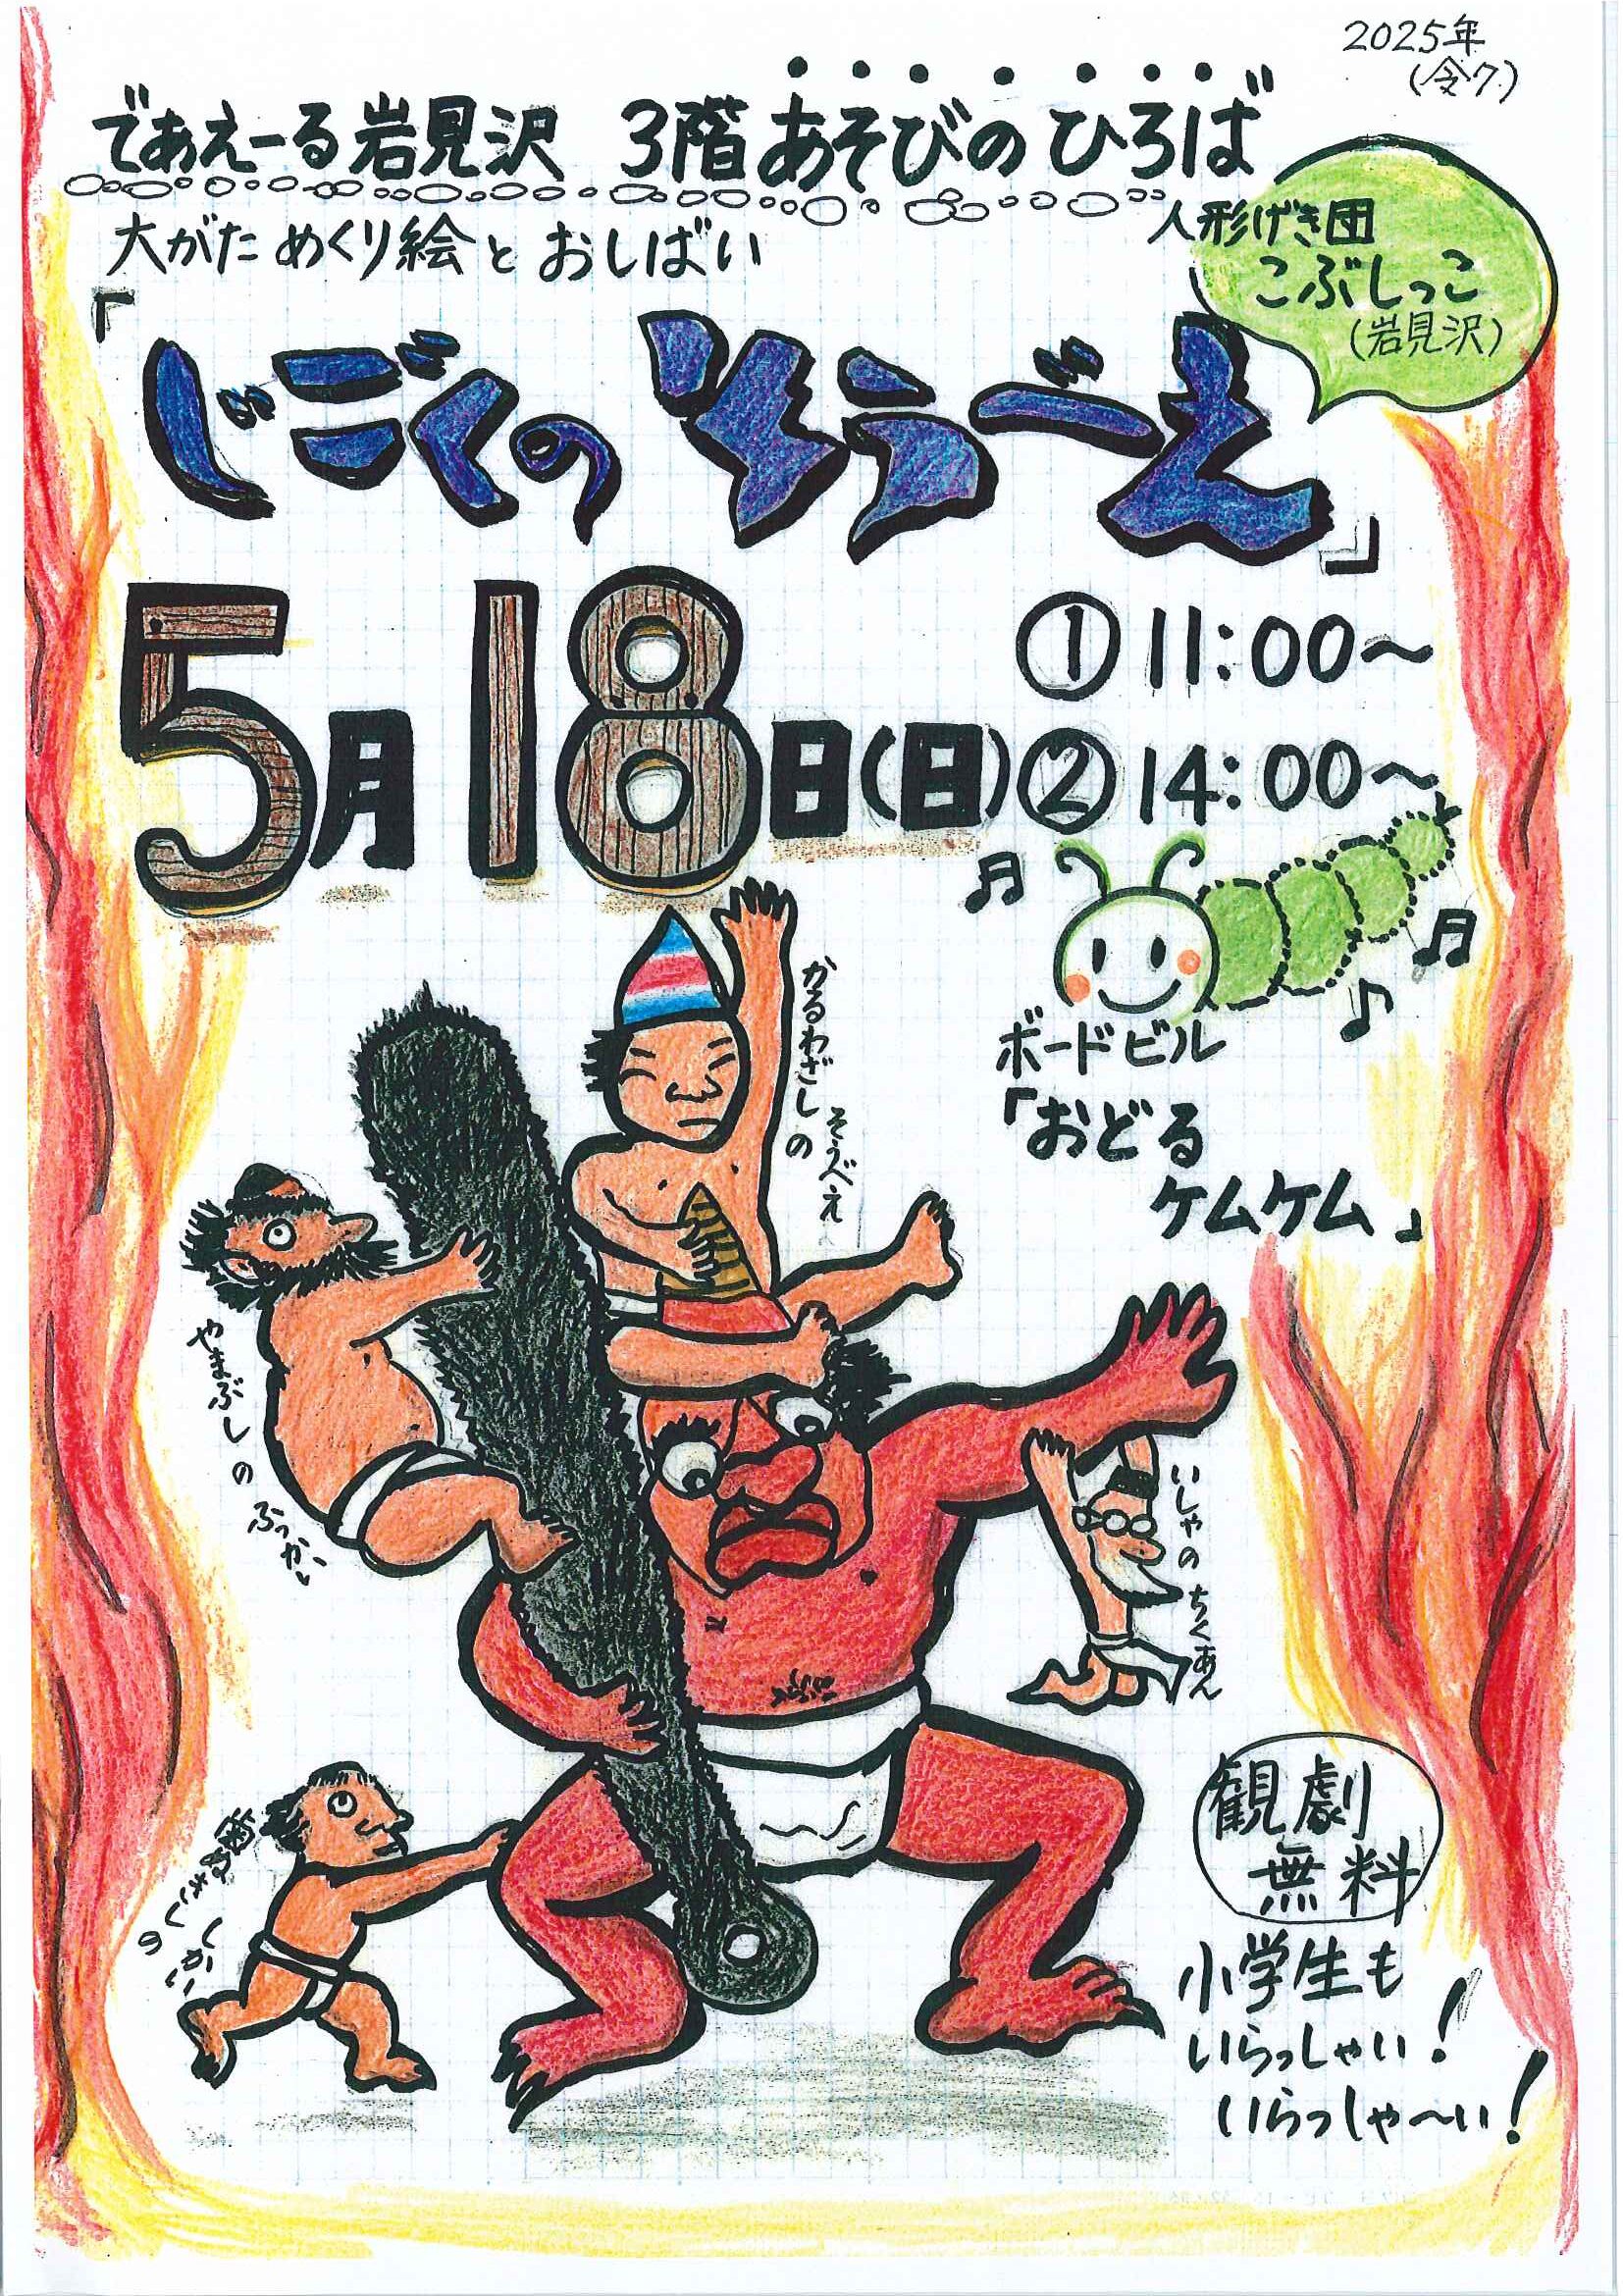 2025年
(令7)
であえーる岩見沢 3階 あそびのひろば
大がためくり絵とおしばい
人形げき団
こぶしっこ
(岩見沢)
「じごくのそうべえ」
5月18日(日)
① 11:00〜
② 14:00〜
ボードビル
「おどる
ケムケム」
かるわざしの
そうべえ
やまぶしの
ふっかい
いしゃの ちくあん
歯ぬきしの
しかい
観劇
無料
小学生も
いらっしゃい!
いらっしゃ〜い!